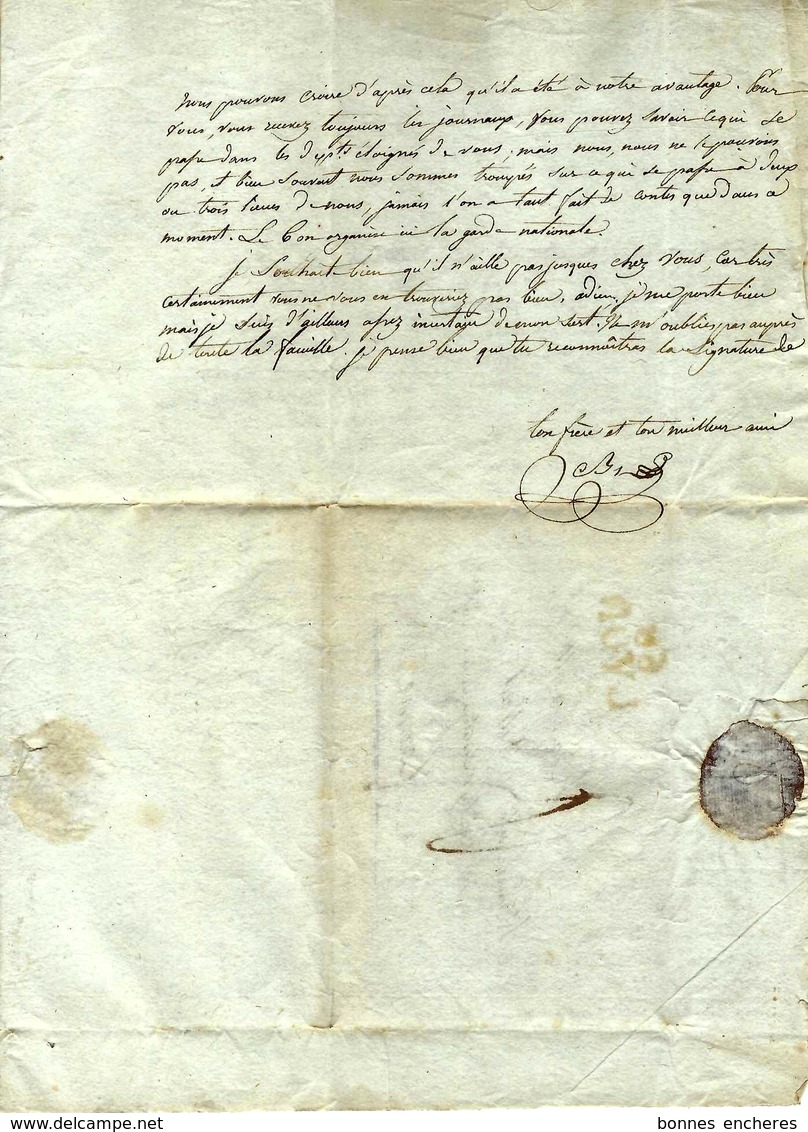 nous pouvons croire d'après cela qu'il a été à notre avantage. Pour
vous, vous recevez toujours les journaux, vous pouvez savoir ce qui se
passe dans les dépts. éloignés de vous; mais nous, nous ne le pouvons
pas, et bien souvent nous sommes trompés sur ce qui se passe à deux
ou trois lieues de nous, jamais l'on a tant fait de contes que dans ce
moment. L'on organise ici la garde nationale.
je souhait bien qu'il n'aille pas jusques chez vous, car très
certainement vous ne vous en trouveriez pas bien, adieu, je me porte bien
mais je suis d'ailleurs assez incertain de mon sort. Ne m'oublies pas auprès
de toute la famille. je pense bien que tu reconnoîtras la signature de
ton frère et ton meilleur ami
bonnes encheres